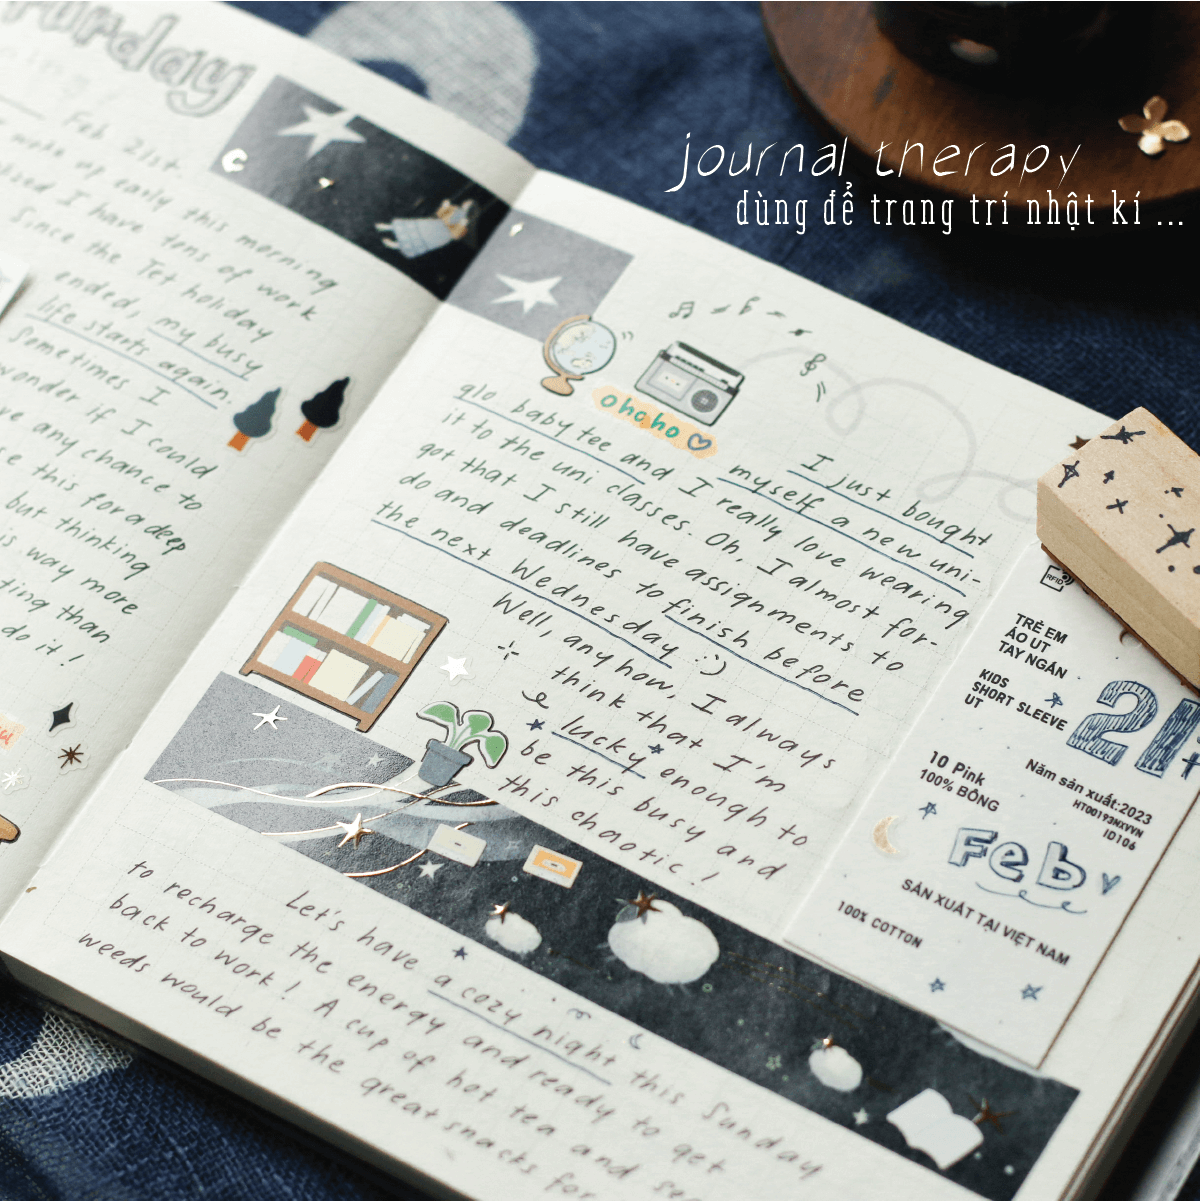 journal therapy
dùng để trang trí nhật kí ...
urday
Feb 21st
woke up early this morning
I have tons of work
Since the Tet holiday
ended, my busy
life starts again.
Sometimes I
wonder if I could
any chance to
this for a deep
but thinking
way more
than
do it!
ohoho
I just bought
myself a new uni-
qlo baby tee and I really love wearing
it to the uni classes. Oh, I almost for-
got that I still have assignments to
do and deadlines to finish before
the next Wednesday :)
Well, anyhow, I always
think that I'm
lucky enough to
be this busy and
this chaotic!
Let's have a cozy night this Sunday
to recharge the energy and ready to get
back to work! A cup of hot tea and
weeds would be the great snacks for
RFID
TRẺ EM
ÁO UT
TAY NGẮN
KIDS
SHORT SLEEVE
UT
21
10 Pink
100% BÔNG
Năm sản xuất:2023
HT00193NXVVN
ID106
Feb
SẢN XUẤT TẠI VIỆT NAM
100% COTTON